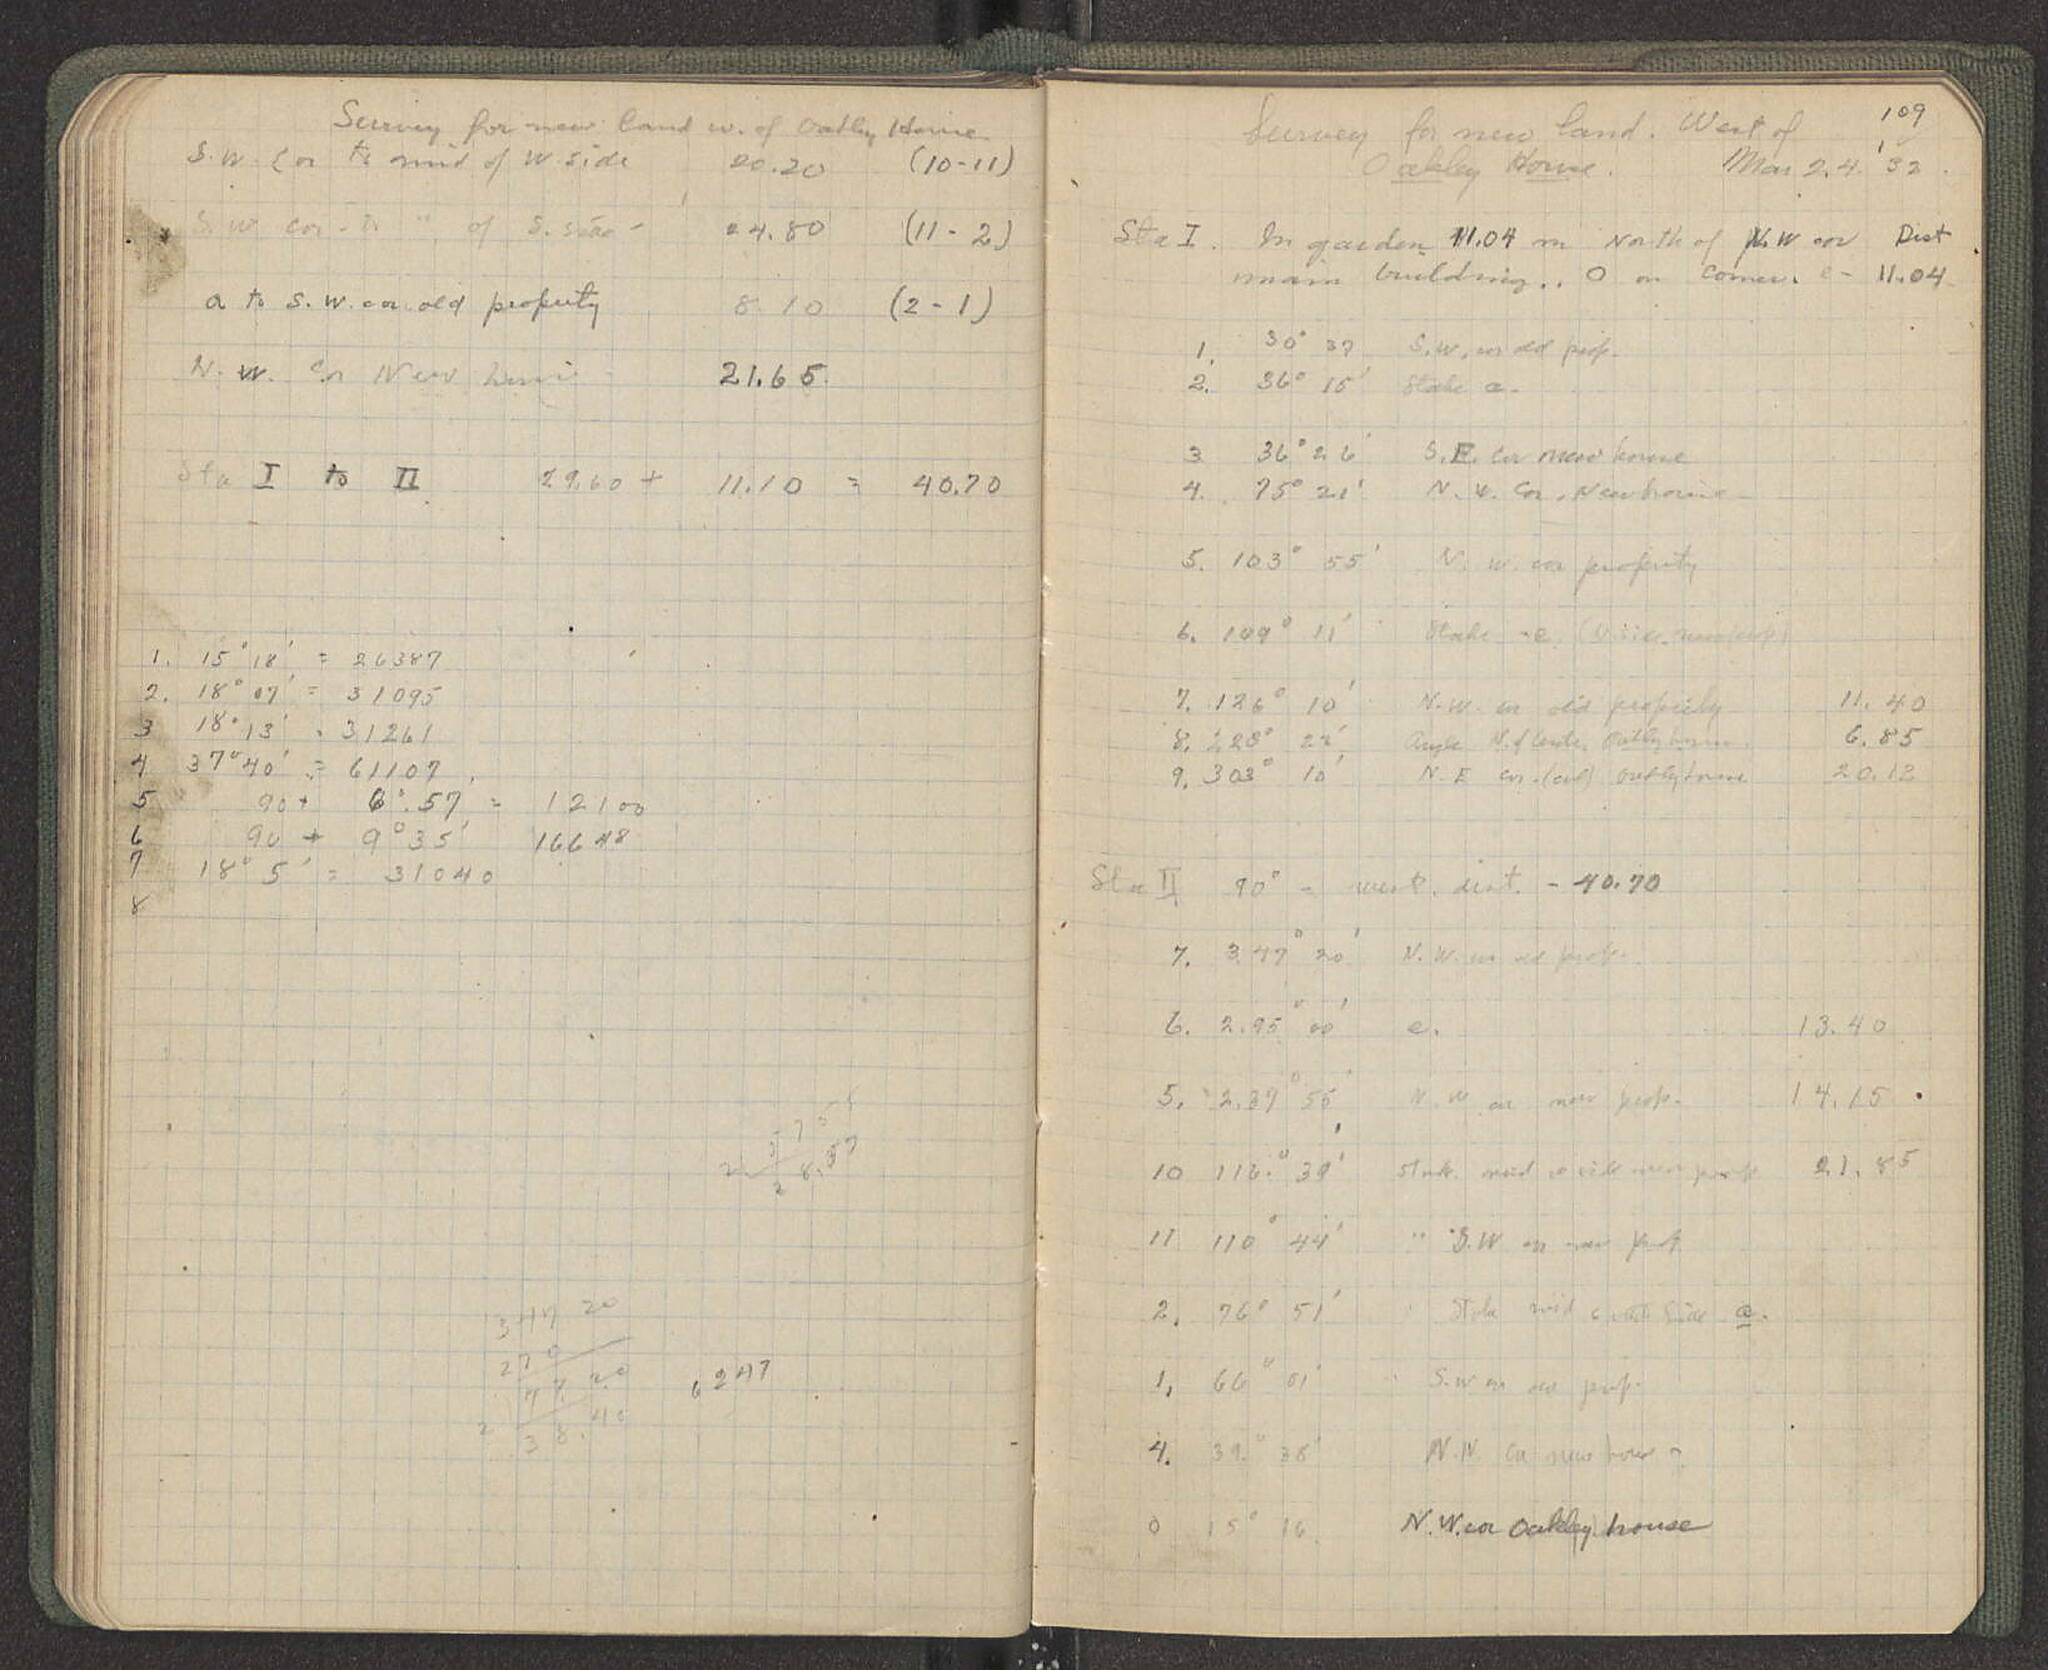 Survey for new land w. of Oakley House
S.W. Cor to mid of W. side 20.20 (10-11)
S.W cor - to " of S. side - 24.80 (11-2)
a to S.W. cor. old property 8.10 (2-1)
N.W. Cor New 21.65.
Sta I to II 29.60 + 11.10 = 40.70
1. 15° 18' = 26387
2. 18° 07' = 31095
3 18° 13' . 31261
4 37° 40' = 61107
5 90 + 6°.57' = 12100
6 90 + 9° 35' 16648
7 18° 5' = 31040
8
347 20
270
77 20
2
38.40
.2247
109
Survey for new land. West of
Oakley House. Mar 24 '32.
Sta I. In garden 11.04 m North of N.W cor Dist
main building.. 0 on corner. e - 11.04
1. 30° 37 S.W. cor old prop.
2. 36° 15' Stake a.
3 36° 26' S.E. Cor new house
4. 75° 21' N.W. Cor. New house
5. 103° 55' N.W. cor property
6. 109° 11' Stake - e
7. 126° 10' N.W. cor old property 11.40
8. 228° 22' Angle N. of Oakley house 6.85
9. 303° 10' N.E cor. Oakley house 20.12
Sta II 90° = west. dist. - 40.70
7. 347° 20' N.W. cor old prop.
6. 295° 00' e. 13.40
5. 237° 55' N.W cor new prop. 14.15
10 116.° 39' Stake mid w side new prop 21.85
11 110° 44' " S.W cor new prop
2. 76° 51' " Stake mid south side a.
1. 66° 01' " S.W cor old prop.
4. 39.° 38' N.W. Cor new house
0 15° 16 N.W. cor Oakley house